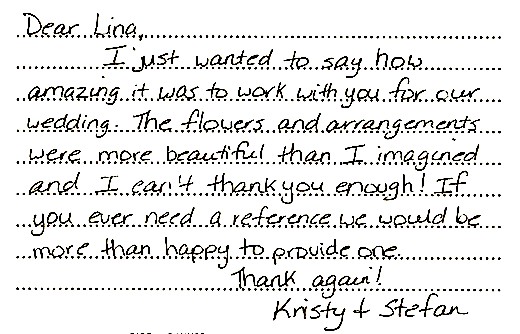 Dear Lina,
I just wanted to say how
amazing it was to work with you for our
wedding. The flowers and arrangements
were more beautiful than I imagined
and I can't thank you enough! If
you ever need a reference we would be
more than happy to provide one.
Thank again!
Kristy & Stefan